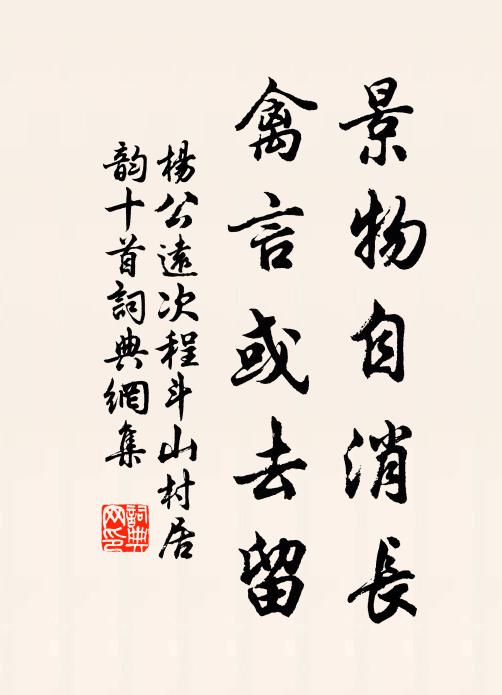 景物自消長
禽言或去留
楊公遠次程斗山村居
韵十首詞典網集
詞典
网印